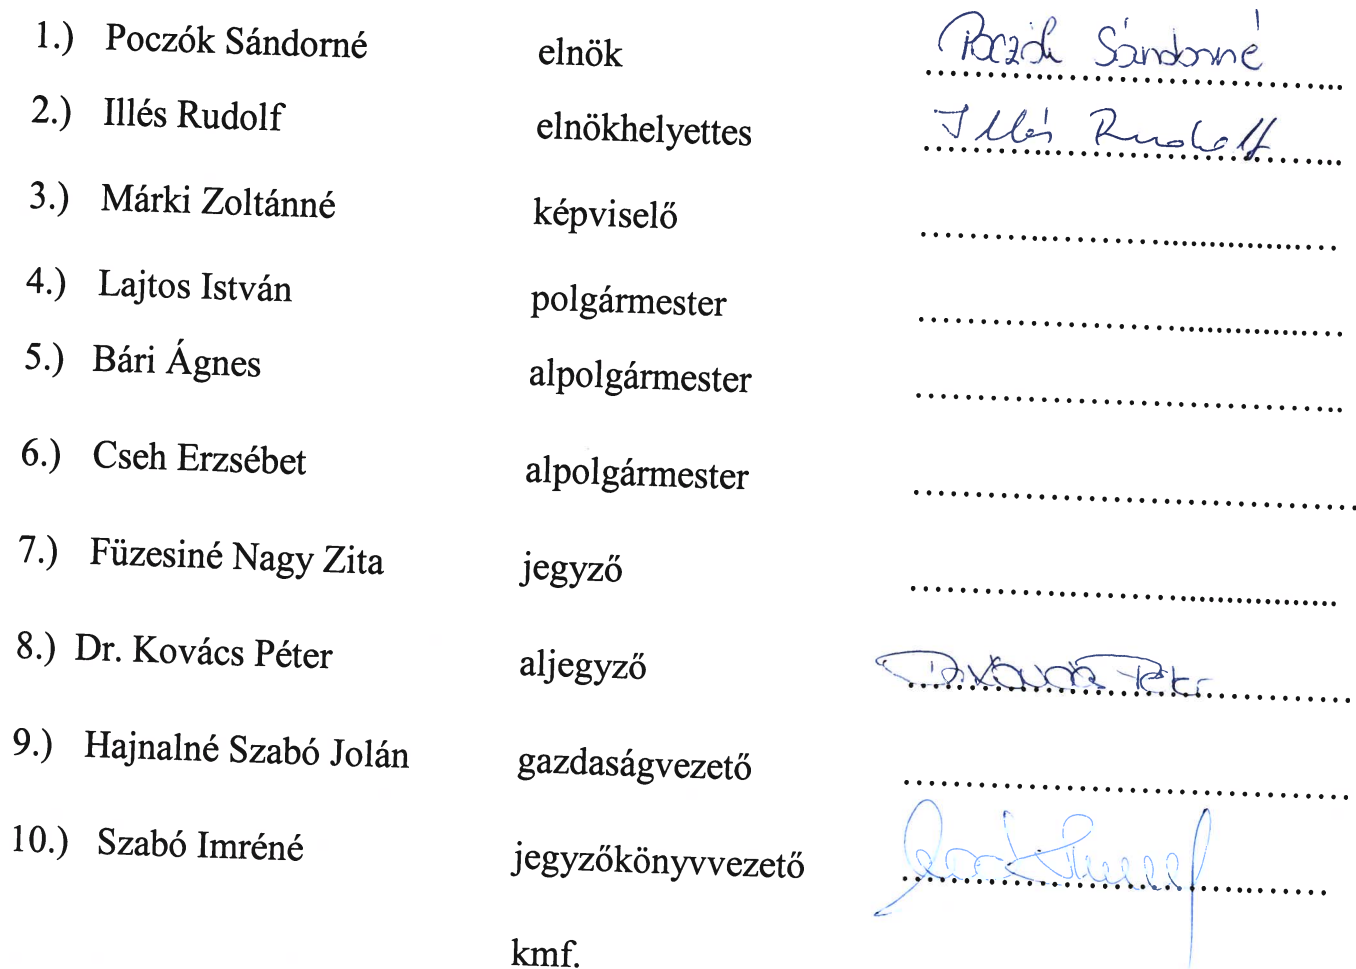 1.) Poczók Sándorné elnök Poczók Sándorné
2.) Illés Rudolf elnökhelyettes Illés Rudolf
3.) Márki Zoltánné képviselő ........................................
4.) Lajtos István polgármester ........................................
5.) Bári Ágnes alpolgármester ........................................
6.) Cseh Erzsébet alpolgármester ........................................
7.) Füzesiné Nagy Zita jegyző ........................................
8.) Dr. Kovács Péter aljegyző Dr. Kovács Péter
9.) Hajnalné Szabó Jolán gazdaságvezető ........................................
10.) Szabó Imréné jegyzőkönyvvezető
kmf.